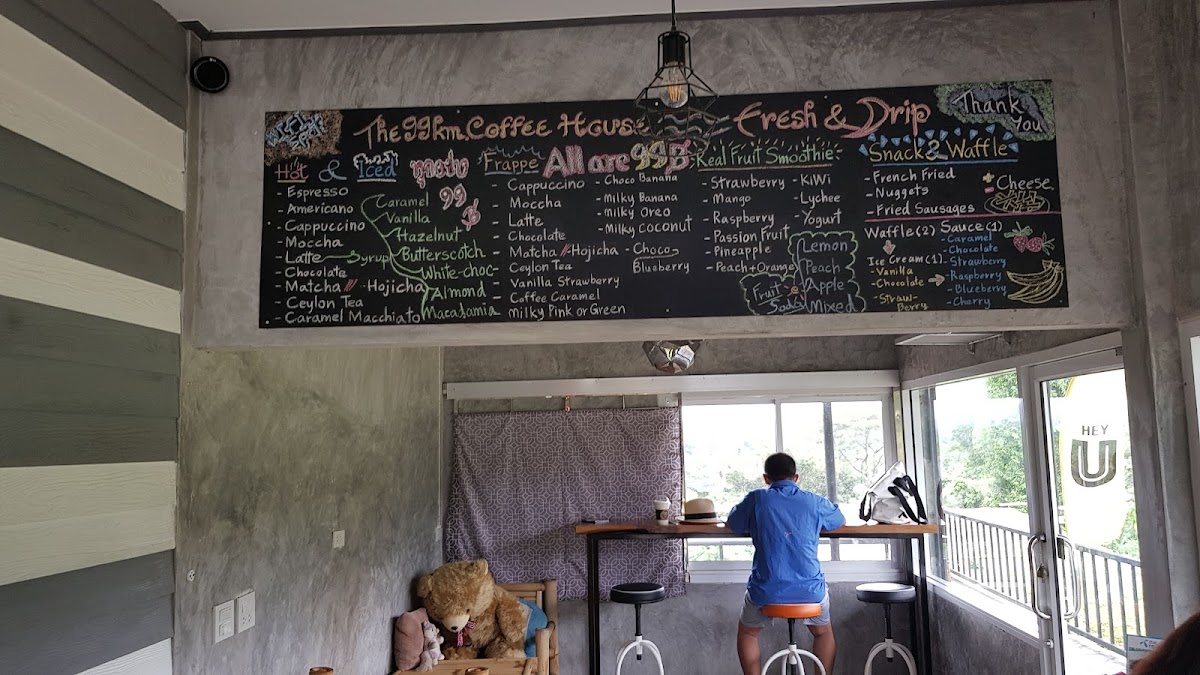 The 99 km. Coffee House Fresh & Drip
Thank You
Hot & Iced
ทุกแก้ว
99 ฿
- Espresso
- Americano
- Cappuccino
- Moccha
- Latte
- Chocolate
- Matcha // - Hojicha
- Ceylon Tea
- Caramel Macchiato
Syrup
Caramel
Vanilla
Hazelnut
Butterscotch
White-choc
Almond
Macadamia
Frappe All are 99฿
- Cappuccino
- Moccha
- Latte
- Chocolate
- Matcha // - Hojicha
- Ceylon Tea
- Vanilla Strawberry
- Coffee Caramel
- Milky Pink or Green
- Choco Banana
- Milky Banana
- Milky Oreo
- Milky Coconut
- Choco
Blueberry
Real Fruit Smoothie
- Strawberry
- Mango
- Raspberry
- Passion Fruit
- Pineapple
- Peach + Orange
- Kiwi
- Lychee
- Yogurt
Fruit Soda
Lemon
Peach
Apple
Mixed
Snack & Waffle
- French Fried
- Nuggets
- Fried Sausages
+ Cheese
Waffle (2) Sauce (1)
Ice Cream (1)
- Vanilla
- Chocolate
- Straw-
Berry
- Caramel
- Chocolate
- Strawberry
- Raspberry
- Blueberry
- Cherry
HEY
U